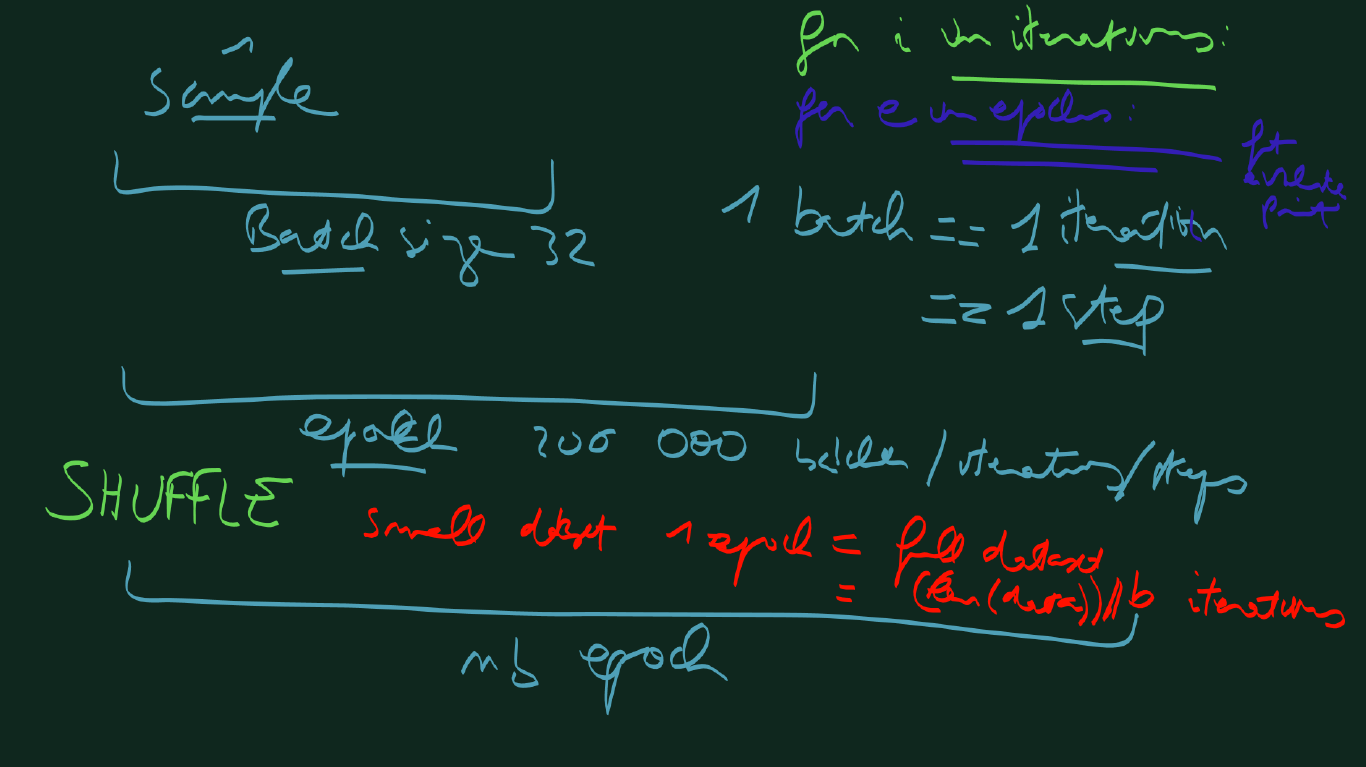 1
sample
Batch size 32
for i in iterations:
for e in epochs:
fit
evaluate
print
1 batch == 1 iteration
== 1 step
epoch 200 000 batches / iterations / steps
SHUFFLE
small dataset 1 epoch = full dataset
= (len(data))//b iterations
nb epoch